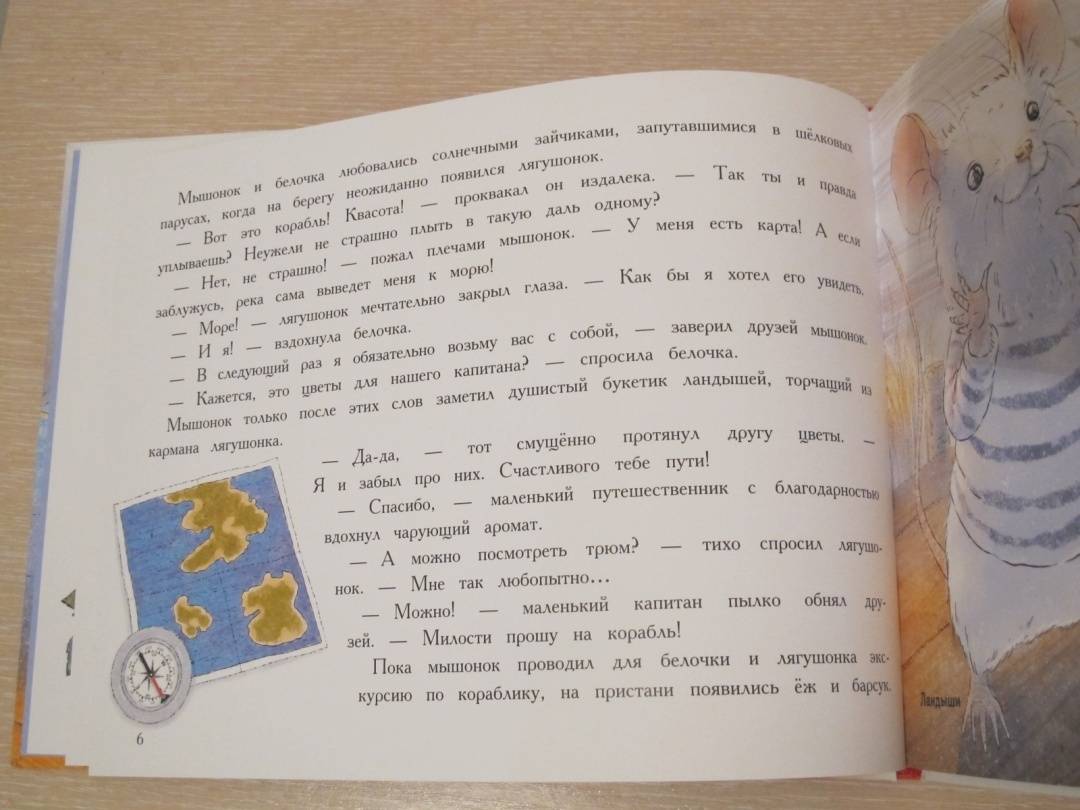 Мышонок и белочка любовались солнечными зайчиками, запутавшимися в шёлковых
парусах, когда на берегу неожиданно появился лягушонок.
— Вот это корабль! Квасота! — проквакал он издалека. — Так ты и правда
уплываешь? Неужели не страшно плыть в такую даль одному?
— Нет, не страшно! — пожал плечами мышонок. — У меня есть карта! А если
заблужусь, река сама выведет меня к морю!
— Море! — лягушонок мечтательно закрыл глаза. — Как бы я хотел его увидеть.
— И я! — вздохнула белочка.
— В следующий раз я обязательно возьму вас с собой, — заверил друзей мышонок.
— Кажется, это цветы для нашего капитана? — спросила белочка.
Мышонок только после этих слов заметил душистый букетик ландышей, торчащий из
кармана лягушонка.
— Да-да, — тот смущённо протянул другу цветы. —
Я и забыл про них. Счастливого тебе пути!
— Спасибо, — маленький путешественник с благодарностью
вдохнул чарующий аромат.
— А можно посмотреть трюм? — тихо спросил лягушо-
нок. — Мне так любопытно...
— Можно! — маленький капитан пылко обнял дру-
зей. — Милости прошу на корабль!
Пока мышонок проводил для белочки и лягушонка экс-
курсию по кораблику, на пристани появились ёж и барсук.
6
Ландыши